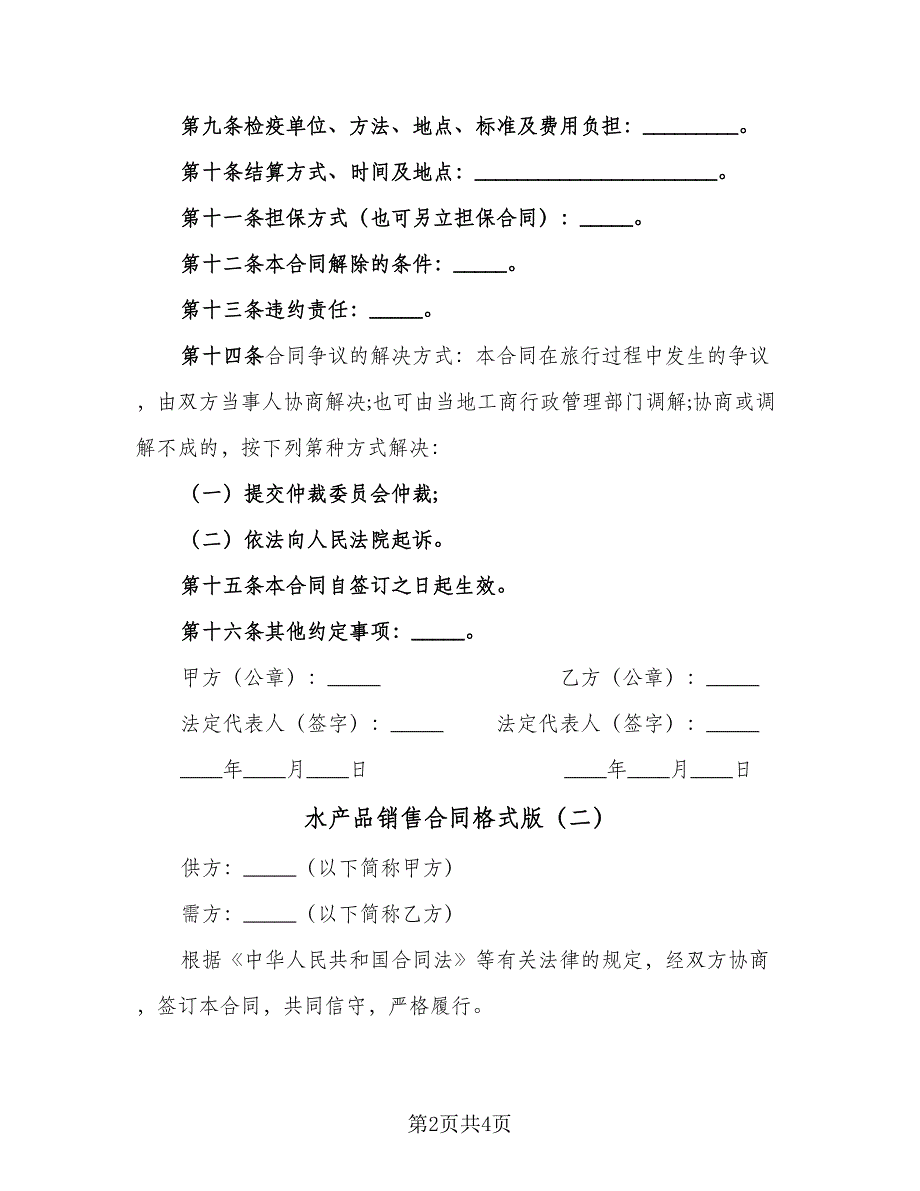 第九条检疫单位、方法、地点、标准及费用负担：_________。
第十条结算方式、时间及地点：_______________________。
第十一条担保方式（也可另立担保合同）：_____。
第十二条本合同解除的条件：_____。
第十三条违约责任：_____。
第十四条合同争议的解决方式：本合同在旅行过程中发生的争议
，由双方当事人协商解决;也可由当地工商行政管理部门调解;协商或调
解不成的，按下列第种方式解决：
（一）提交仲裁委员会仲裁;
（二）依法向人民法院起诉。
第十五条本合同自签订之日起生效。
第十六条其他约定事项：_____。
甲方（公章）：_____ 乙方（公章）：_____
法定代表人（签字）：_____ 法定代表人（签字）：_____
____年____月____日 ____年____月____日
水产品销售合同格式版（二）
供方：_____（以下简称甲方）
需方：_____（以下简称乙方）
根据《中华人民共和国合同法》等有关法律的规定，经双方协商
，签订本合同，共同信守，严格履行。
第2页共4页